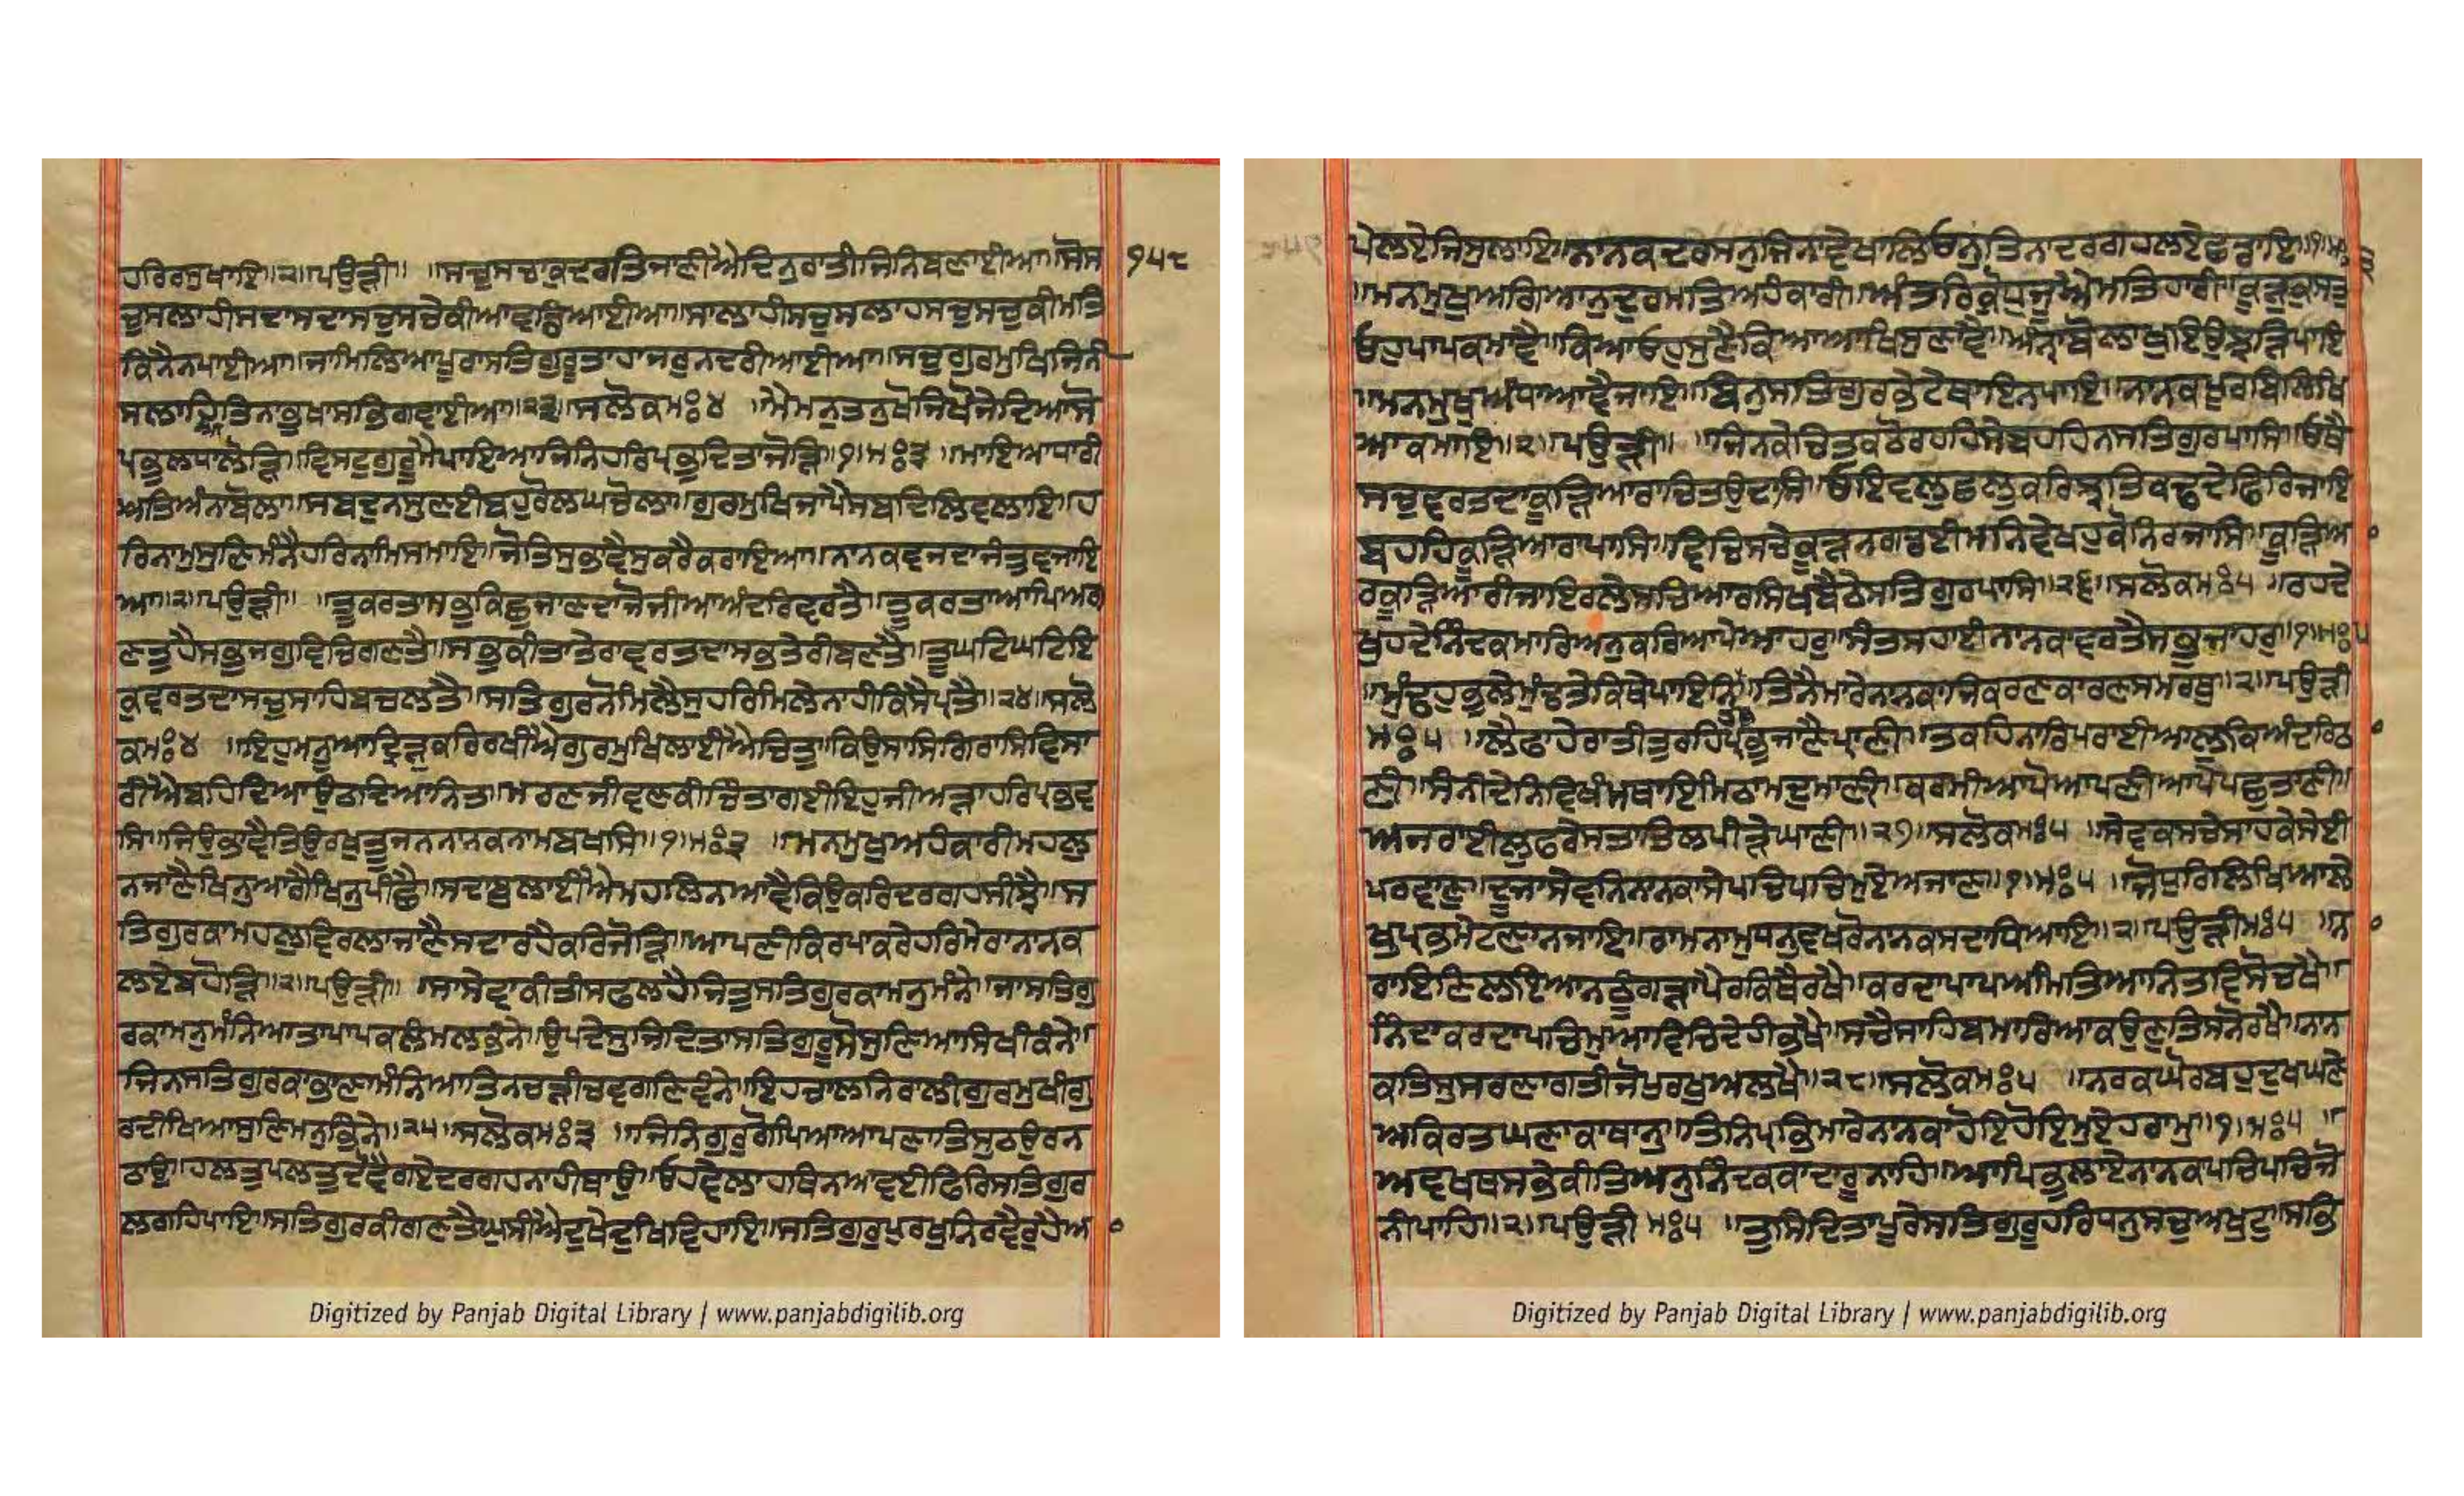 ਹਰਿਰਸੁਖਾਇ॥੨॥ਪਉੜੀ॥ ॥ਸਚੁਸਚਾਕੁਦਰਤਿਜਾਣੀਐਦਿਨੁਰਾਤੀਜਿਨਿਬਣਾਈਆ॥ਸੋਸ ੧੫੮
ਚੁਸਲਾਹੀਸਦਾਸਦਾਸਚੁਸਚੇਕੀਆਵਡਿਆਈਆ॥ਸਾਲਾਹੀਸਚੁਸਲਾਹਸਚੁਸਚੁਕੀਮਤਿ
ਕਿਨੈਨਪਾਈਆ॥ਜਾਮਿਲਿਆਪੂਰਾਸਤਿਗੁਰੂਤਾਹਾਜਰੁਨਦਰੀਆਈਆ॥ਸਚੁਗੁਰਮੁਖਿਜਿਨੀ
ਸਲਾਹਿਆਤਿਨਾਭੁਖਾਸਭਿਗਵਾਈਆ॥੨੩॥ਸਲੋਕਮਃ੪ ॥ਮੈਮਨੁਤਨੁਖੋਜਿਖੋਜੇਦਿਆਸੋ
ਪ੍ਰਭੁਲਧਾਲੋੜਿ॥ਵਿਸਟੁਗੁਰੂਮੈਪਾਇਆਜਿਨਿਹਰਿਪ੍ਰਭੁਦਿਤਾਜੋੜਿ॥੧॥ਮਃ੩ ॥ਮਾਇਆਧਾਰੀ
ਅਤਿਅੰਨਾਬੋਲਾ॥ਸਬਦੁਨਸੁਣਈਬਹੁਰੋਲਘਚੋਲਾ॥ਗੁਰਮੁਖਿਜਾਪੈਸਬਦਿਲਿਵਲਾਇ॥ਹ
ਰਿਨਾਮੁਸੁਣਿਮੰਨੈਹਰਿਨਾਮਿਸਮਾਇ॥ਜੋਤਿਸੁਭਾਵੈਸੁਕਰੈਕਰਾਇਆ॥ਨਾਨਕਵਜਦਾਜੰਤੁਵਜਾਇ
ਆ॥੨॥ਪਉੜੀ॥ ॥ਤੂਕਰਤਾਸਭੁਕਿਛੁਜਾਣਦਾਜੋਜੀਆਅੰਦਰਿਵਰਤੈ॥ਤੂਕਰਤਾਆਪਿਅਗ
ਣਤੁਹੈਸਭੁਜਗੁਵਿਚਿਗਣਤੈ॥ਸਭੁਕੀਤਾਤੇਰਾਵਰਤਦਾਸਭਤੇਰੀਬਣਤੈ॥ਤੂਘਟਿਘਟਿਇ
ਕੁਵਰਤਦਾਸਚੁਸਾਹਿਬਚਲਤੈ॥ਸਤਿਗੁਰਨੋਮਿਲੈਸੁਹਰਿਮਿਲੇਨਾਹੀਕਿਸੈਪਰਤੈ॥੨੪॥ਸਲੋ
ਕਮਃ੪ ॥ਇਹੁਮਨੂਆਦ੍ਰਿੜੁਕਰਿਰਖੀਐਗੁਰਮੁਖਿਲਾਈਐਚਿਤੁ॥ਕਿਉਸਾਸਿਗਿਰਾਸਿਵਿਸਾ
ਰੀਐਬਹਦਿਆਉਠਦਿਆਨਿਤ॥ਮਰਣਜੀਵਣਕੀਚਿੰਤਾਗਈਇਹੁਜੀਅੜਾਹਰਿਪ੍ਰਭੁਵ
ਸਿ॥ਜਿਉਭਾਵੈਤਿਉਰਖੁਤੂਜਨਨਾਨਕਨਾਮੁਬਖਸਿ॥੧॥ਮਃ੩ ॥ਮਨਮੁਖੁਅਹੰਕਾਰੀਮਹਲੁ
ਨਜਾਣੈਖਿਨੁਆਗੈਖਿਨੁਪੀਛੈ॥ਸਦਾਬੁਲਾਈਐਮਹਲਿਨਆਵੈਕਿਉਕਰਿਦਰਗਹਸੀਝੈ॥ਸ
ਤਿਗੁਰਕਾਮਹਲੁਵਿਰਲਾਜਾਣੈਸਦਾਰਹੈਕਰਿਜੋੜਿ॥ਆਪਣੀਕਿਰਪਾਕਰੇਹਰਿਮੇਰਾਨਾਨਕ
ਲਏਬਹੋੜਿ॥੨॥ਪਉੜੀ॥ ॥ਸਾਸੇਵਾਕੀਤੀਸਫਲਹੈਜਿਤੁਸਤਿਗੁਰਕਾਮਨੁਮੰਨੇ॥ਜਾਸਤਿਗੁ
ਰਕਾਮਨੁਮੰਨਿਆਤਾਪਾਪਕਸੰਮਲਭੰਨੇ॥ਉਪਦੇਸੁਜਿਦਿਤਾਸਤਿਗੁਰੂਸੋਸੁਣਿਆਸਿਖੀਕੰਨੇ॥
ਜਿਨਸਤਿਗੁਰਕਾਭਾਣਾਮੰਨਿਆਤਿਨਚੜੀਚਵਗਣਿਵੰਨੇ॥ਇਹਚਾਲਨਿਰਾਲੀਗੁਰਮੁਖੀਗੁ
ਰਦੀਖਿਆਸੁਣਿਮਨੁਭਿੰਨੇ॥੨੫॥ਸਲੋਕਮਃ੩ ॥ਜਿਨਿਗੁਰੁਗੋਪਿਆਆਪਣਾਤਿਸੁਠਉਰਨ
ਠਾਉ॥ਹਲਤੁਪਲਤੁਦੋਵੈਗਏਦਰਗਹਨਾਹੀਥਾਉ॥ਓਹਵੇਲਾਹਥਿਨਆਵਈਫਿਰਿਸਤਿਗੁਰ
ਲਗਹਿਪਾਇ॥ਸਤਿਗੁਰਕੀਗਣਤੈਘੁਸੀਐਦੁਖੇਦੁਖਿਵਿਹਾਇ॥ਸਤਿਗੁਰੁਪੁਰਖੁਨਿਰਵੈਰੁਹੈਆ
Digitized by Panjab Digital Library | www.panjabdigilib.org
ਪੇਲਏਜਿਸੁਲਾਇ॥ਨਾਨਕਦਰਸਨੁਜਿਨਾਵੇਖਾਲਿਓਨੁਤਿਨਾਦਰਗਹਲਏਛਡਾਇ॥੧॥ਮਃ੩
॥ਮਨਮੁਖੁਅਗਿਆਨੁਦੁਰਮਤਿਅਹੰਕਾਰੀ॥ਅੰਤਰਿਕ੍ਰੋਧੁਜੂਐਮਤਿਹਾਰੀ॥ਕੂੜੁਕੁਸਤੁ
ਓਹੁਪਾਪਕਮਾਵੈ॥ਕਿਆਓਹੁਸੁਣੈਕਿਆਆਖਿਸੁਣਾਵੈ॥ਅੰਨਾਬੋਲਾਖੁਇਉਝੜਿਪਾਇ
॥ਮਨਮੁਖੁਅੰਧਾਆਵੈਜਾਇ॥ਬਿਨੁਸਤਿਗੁਰਭੇਟੇਥਾਇਨਪਾਇ॥ਨਾਨਕਪੂਰਬਿਲਿਖਿ
ਆਕਮਾਇ॥੨॥ਪਉੜੀ॥ ॥ਜਿਨਕੇਚਿਤਕਠੋਰਹਹਿਸੇਬਹਹਿਨਸਤਿਗੁਰਪਾਸਿ॥ਓਥੈ
ਸਚੁਵਰਤਦਾਕੂੜਿਆਰਾਚਿਤਉਦਾਸਿ॥ਓਇਵਲੁਛਲੁਕਰਿਝਤਿਕਢਦੇਫਿਰਿਜਾਇ
ਬਹਹਿਕੂੜਿਆਰਾਪਾਸਿ॥ਵਿਚਿਸਚੇਕੂੜੁਨਗਡਈਮਨਿਵੇਖਹੁਕੋਨਿਰਜਾਸਿ॥ਕੂੜਿਆ
ਰਕੂੜਿਆਰੀਜਾਇਰਲੇਸਚਿਆਰਸਿਖਬੈਠੇਸਤਿਗੁਰਪਾਸਿ॥੨੬॥ਸਲੋਕਮਃ੫ ॥ਰਹਦੇ
ਖੁਹਦੇਨਿੰਦਕਮਾਰਿਅਨੁਕਰਿਆਪੇਆਹਰੁ॥ਸੰਤਸਹਾਈਨਾਨਕਾਵਰਤੈਸਭਜਾਹਰੁ॥੧॥ਮਃ੫
॥ਮੁੰਢਹੁਭੁਲੇਮੁੰਢਤੇਕਿਥੈਪਾਇਨਿਹਥੁ॥ਤਿੰਨੈਮਾਰੇਨਾਨਕਾਜਿਕਰਣਕਾਰਣਸਮਰਥੁ॥੨॥ਪਉੜੀ
ਮਃ੫ ॥ਲੈਫਾਹੇਰਾਤੀਤੁਰਹਿਪ੍ਰਭੁਜਾਣੈਪ੍ਰਾਣੀ॥ਤਕਹਿਨਾਰਿਪਰਾਈਆਲੁਕਿਅੰਦਰਿਠਾ
ਣੀ॥ਸੰਨੀਦੇਨਿਵਿਖੰਮਥਾਇਮਿਠਾਮਦੁਮਾਣੀ॥ਕਰਮੀਆਪੋਆਪਣੀਆਪੇਪਛੁਤਾਣੀ॥
ਅਜਰਾਈਲੁਫਰੇਸਤਾਤਿਲਪੀੜੇਘਾਣੀ॥੨੭॥ਸਲੋਕਮਃ੫ ॥ਸੇਵਕਸਚੇਸਾਹਕੇਸੇਈ
ਪਰਵਾਣੁ॥ਦੂਜਾਸੇਵਨਿਨਾਨਕਾਸੇਪਚਿਪਚਿਮੁਏਅਜਾਣ॥੧॥ਮਃ੫ ॥ਜੋਧੁਰਿਲਿਖਿਆਲੇ
ਖੁਪ੍ਰਭਮੇਟਣਾਨਜਾਇ॥ਰਾਮਨਾਮੁਧਨੁਵਖਰੋਨਾਨਕਸਦਾਧਿਆਇ॥੨॥ਪਉੜੀਮਃ੫ ॥ਨਾ
ਰਾਇਣਿਲਇਆਨਾਠੂੰਗੜਾਪੈਰਕਿਥੈਰਖੈ॥ਕਰਦਾਪਾਪਅਮਿਤਿਆਨਿਤਵਿਸੋਚਖੈ॥
ਨਿੰਦਾਕਰਦਾਪਚਿਮੁਆਵਿਚਿਦੇਹੀਭਖੈ॥ਸਚੈਸਾਹਿਬਮਾਰਿਆਕਉਣੁਤਿਸਨੋਰਖੈ॥ਨਾਨ
ਕਤਿਸੁਸਰਣਾਗਤੀਜੋਪੁਰਖੁਅਲਖੈ॥੨੮॥ਸਲੋਕਮਃ੫ ॥ਨਰਕਘੋਰਬਹੁਦੁਖਘਣੇ
ਅਕਿਰਤਘਣਾਕਾਥਾਨੁ॥ਤਿਨਿਪ੍ਰਭਿਮਾਰੇਨਾਨਕਾਹੋਇਹੋਇਮੁਏਹਰਾਮੁ॥੧॥ਮਃ੫ ॥
ਅਵਖਧਸਭੇਕੀਤਿਅਨੁਨਿੰਦਕਕਾਦਾਰੂਨਾਹਿ॥ਆਪਿਭੁਲਾਏਨਾਨਕਾਪਚਿਪਚਿਜੋ
ਨੀਪਾਹਿ॥੨॥ਪਉੜੀਮਃ੫ ॥ਤੁਸਿਦਿਤਾਪੂਰੈਸਤਿਗੁਰੂਹਰਿਧਨੁਸਚੁਅਖੁਟੁ॥ਸਭਿ
Digitized by Panjab Digital Library | www.panjabdigilib.org